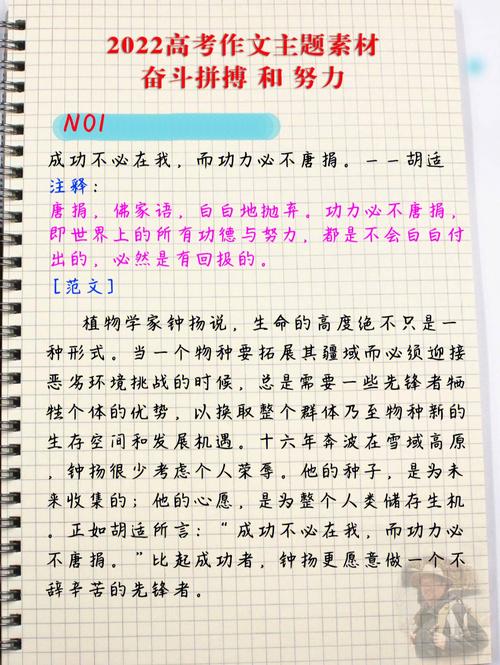 2022高考作文主题素材
奋斗拼搏 和 努力
NO1
成功不必在我，而功力必不唐捐。——胡适
注释：
唐捐，佛家语，白白地抛弃。功力必不唐捐，
即世界上的所有功德与努力，都是不会白白付
出的，必然是有回报的。
[范文]
植物学家钟扬说，生命的高度绝不只是一
种形式。当一个物种要拓展其疆域而必须迎接
恶劣环境挑战的时候，总是需要一些先锋者牺
牲个体的优势，以换取整个群体乃至物种新的
生存空间和发展机遇。十六年奔波在雪域高原
，钟扬很少考虑个人荣辱。他的种子，是为未
来收集的；他的心愿，是为整个人类储存生机
。正如胡适所言：“成功不必在我，而功力必
不唐捐。”比起成功者，钟扬更愿意做一个不
辞辛苦的先锋者。